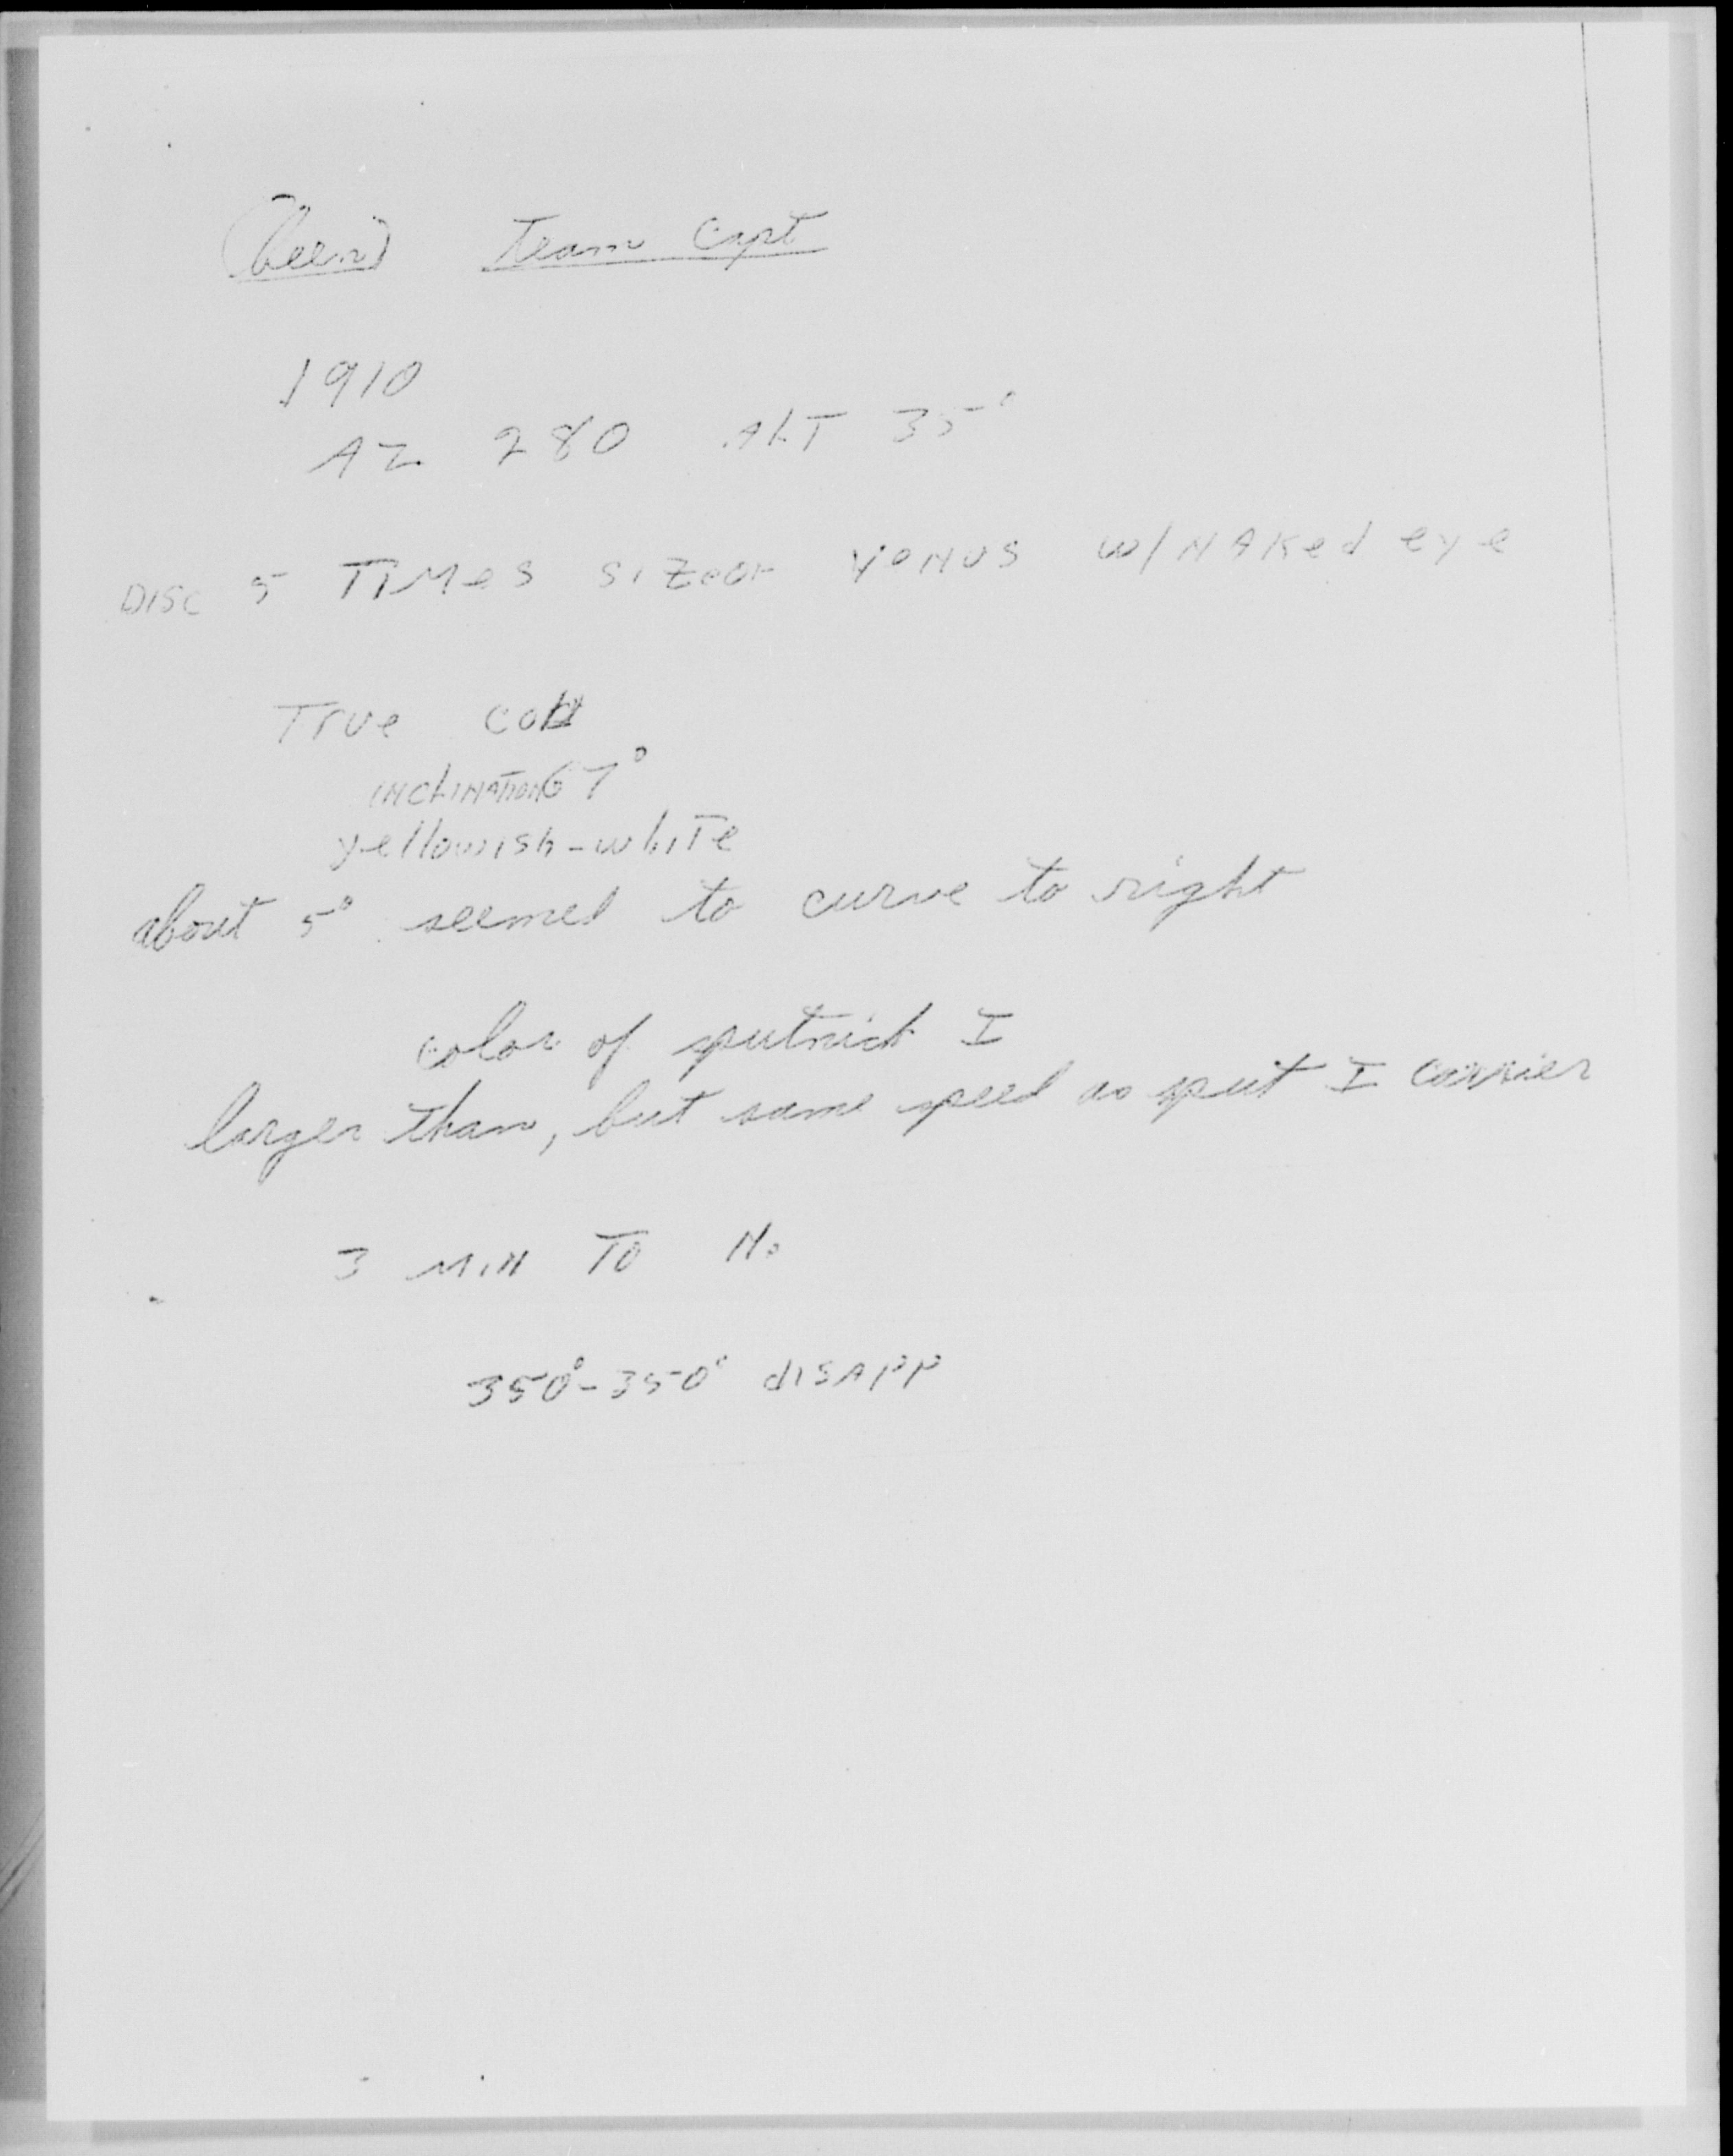 Team Capt
1910
AZ 280 ALT 35°
DISC 5 TIMES SIZE OF VENUS w/NAKed eye
True
INCLINATION 67°
yellowish-white
about 5° seemed to curve to right
color of sputnick I
larger than, but same speed as sput I carrier
3 MIN TO No
350°-350° disapp